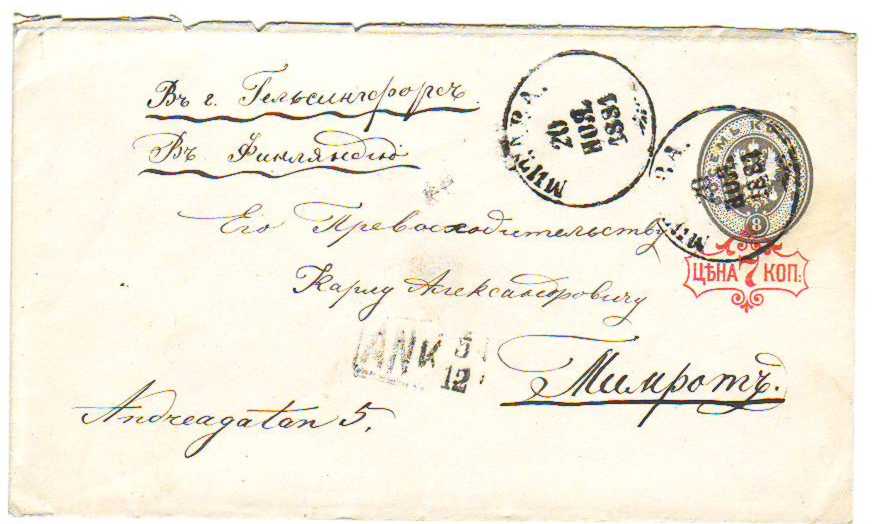 Въ г. Гельсингфорсъ.
Въ Финляндію
Его Превосходительству
Карлу Александровичу
Andreagatan 5.
ANK 5
12
20
НОЯ.
1881
ВОСЕМЬ
8
ЦѢНА 7 КОП: